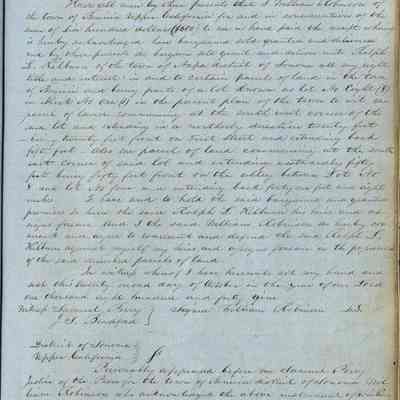 Know all men by these presents that I William Robinson of
the town of Benicia Upper California for and in consideration of the
sum of six hundred dollars ($600) to me in hand paid the receipt whereof
is hereby acknowledged have bargained sold granted and released
and by these presents do bargain sell grant and release unto Ralph
L. Kilburn of the town of Napa district of Sonoma all my right
title and interest in and to certain parcels of land in the town
of Benicia and being parts of a lot known as lot No Eight (8)
in Block No one (1) in the present plan of the town to wit one
parcel of land commencing at the south east corner of the
said lot and extending in a northerly direction twenty feet
being twenty feet front on First Street and extending back
fifty feet. Also one parcel of land commencing at the south
west corner of said lot and extending eastwardly fifty
feet being fifty feet front on the alley between Lots No
8 and lot No four and extending back forty one feet and eight
inches. To have and to hold the said bargained and granted
premises to him the said Ralph L. Kilburn his heirs and as-
signs forever. And I the said William Robinson do hereby cov-
enant and agree to warrant and defend the said Ralph L.
Kilburn against myself my heirs and assigns forever in the possession
of the said described parcels of land.
In witness whereof I have hereunto set my hand and
seal this twenty second day of October in the year of our Lord
one thousand eight hundred and forty nine
Witness Samuel Perry } Signed William Robinson
District of Sonoma }
Upper California }
Personally appeared before me Samuel Perry
Justice of the Peace for the town of Benicia district of Sonoma Wil-
liam Robinson who acknowledged the above instrument